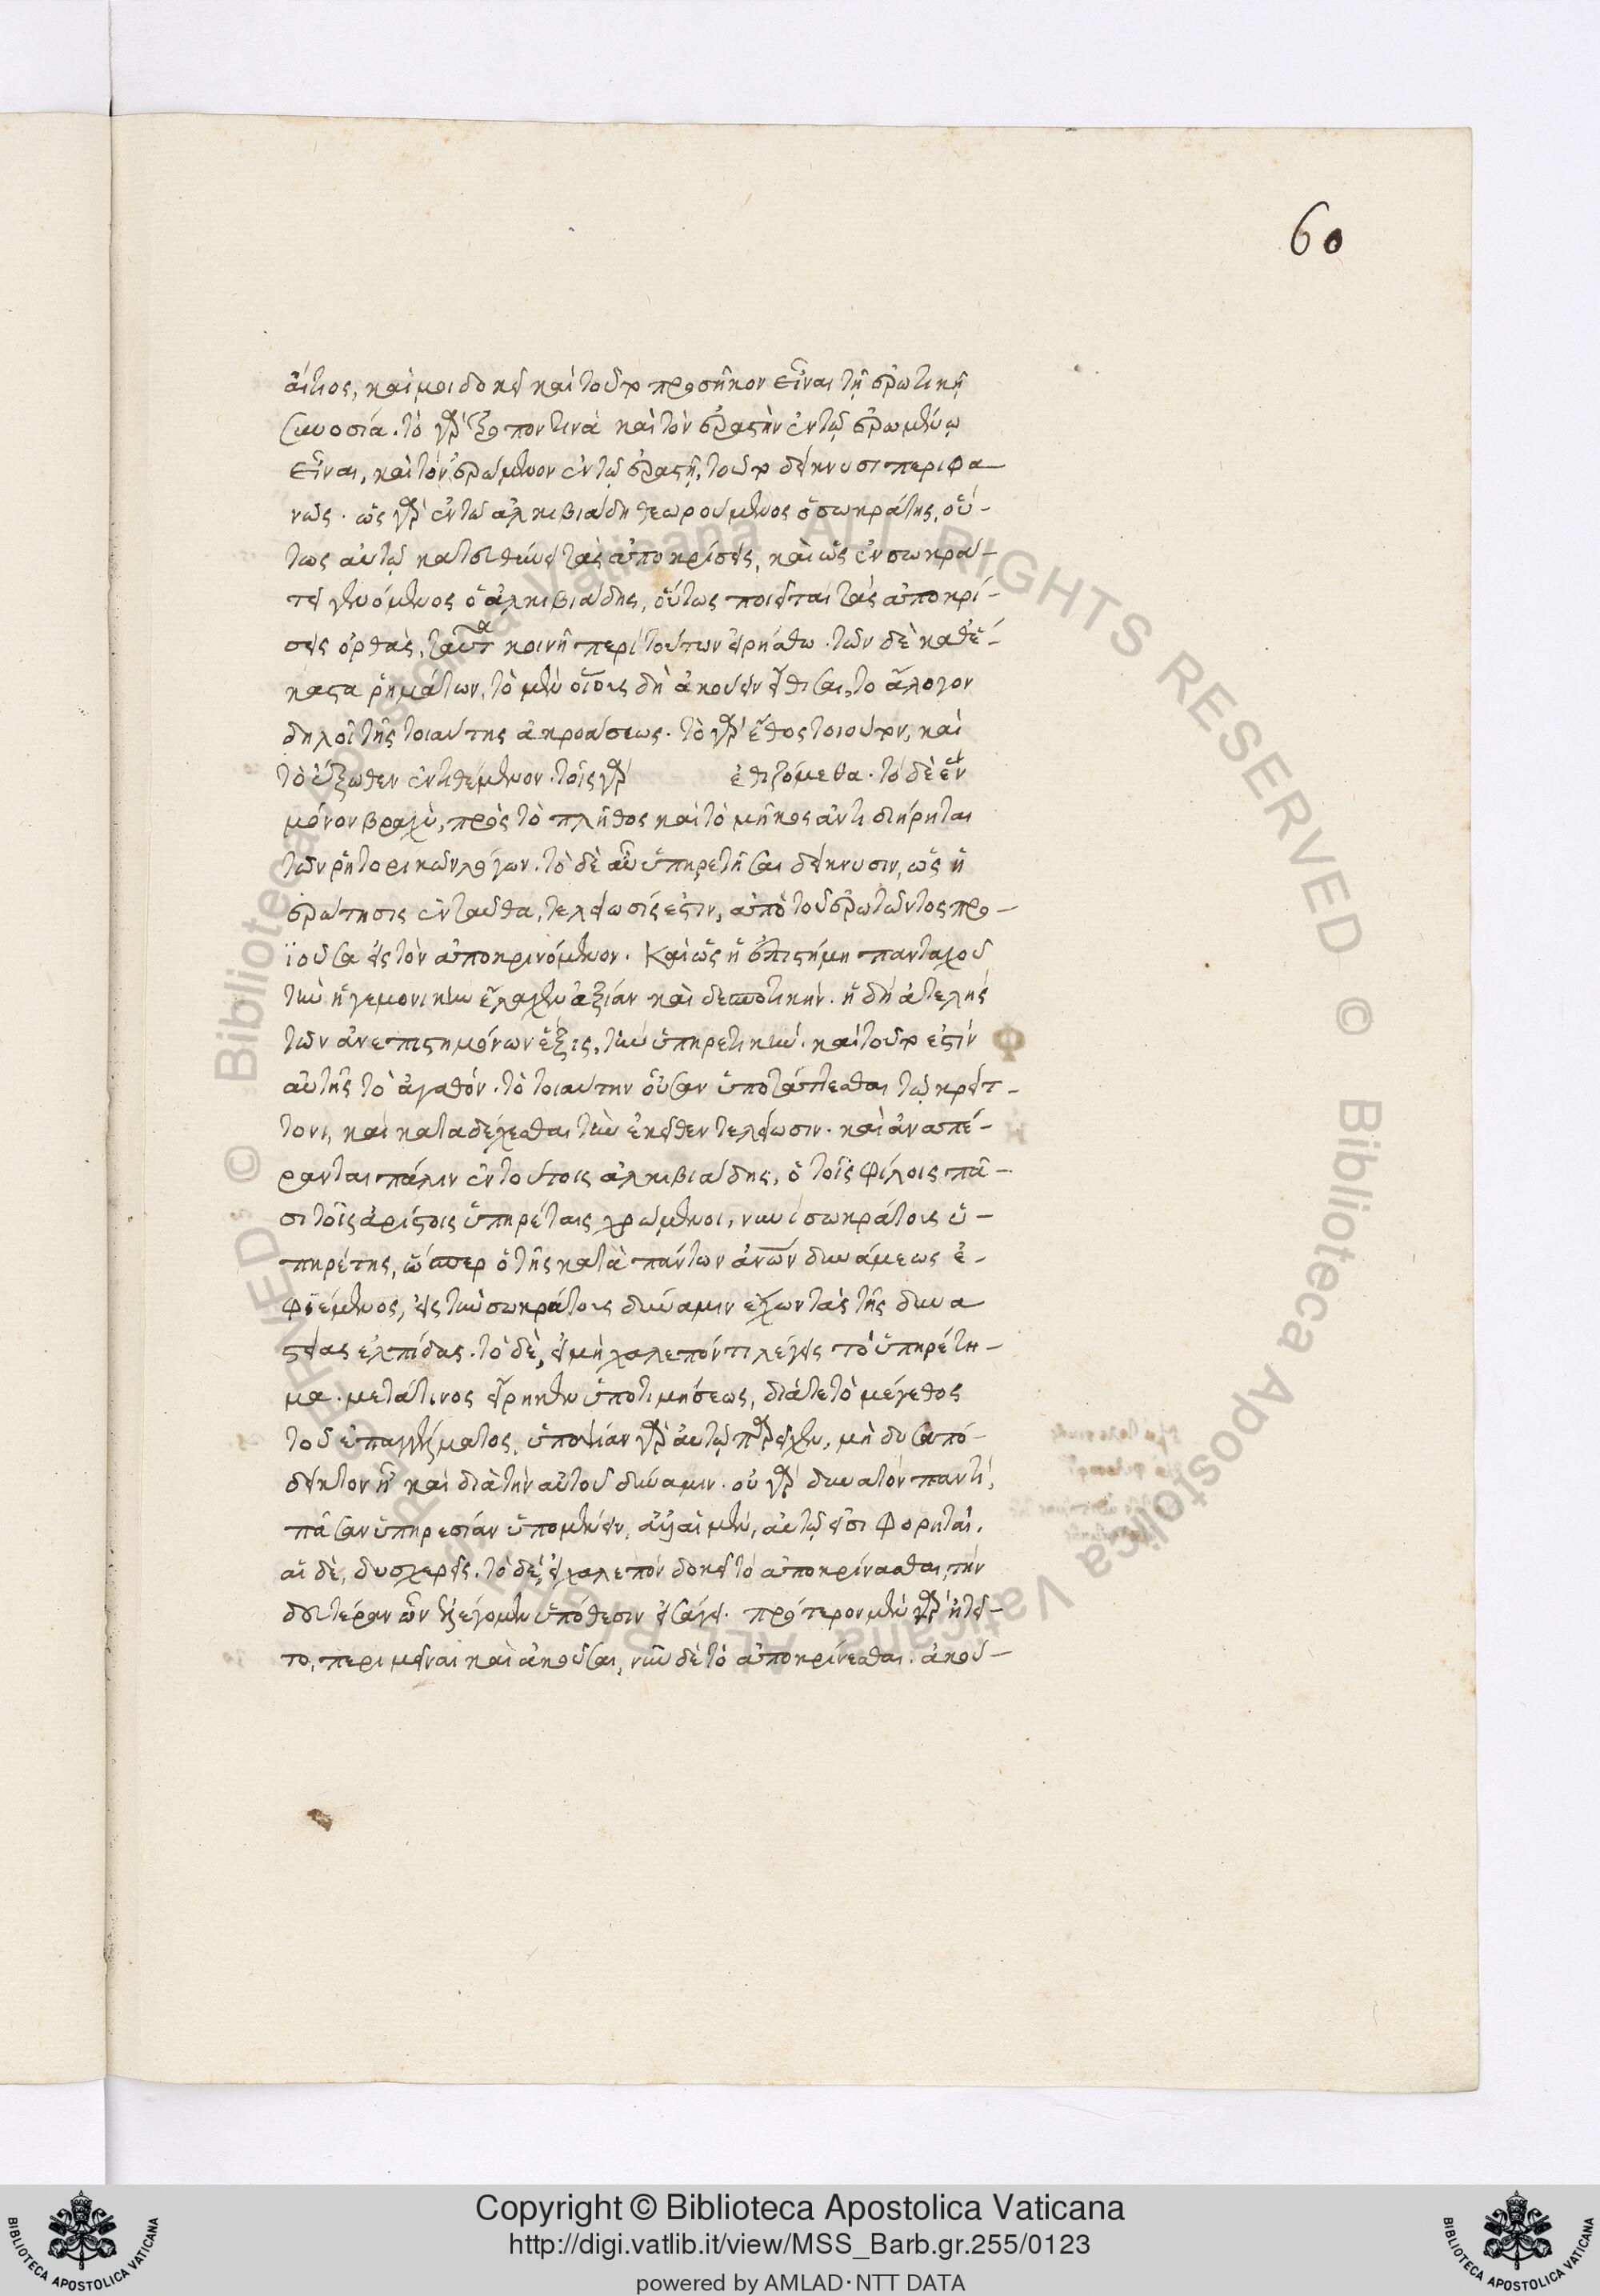 60
αἴτιος, καί μοι δοκεῖ καὶ τοῦτο προσῆκον εἶναι τῇ ἐρωτικῇ
συνουσίᾳ. τὸ γὰρ τρόπον τινὰ καὶ τὸν ἐραστὴν ἐν τῷ ἐρωμένῳ
εἶναι, καὶ τὸν ἐρώμενον ἐν τῷ ἐραστῇ, τοῦτο δείκνυσι περιφα-
νῶς. ὡς γὰρ ἐν τῷ ἀλκιβιάδῃ θεωρούμενος ὁ σωκράτης, οὕ-
τως αὐτῷ κατευθύνει τὰς ἀποκρίσεις, καὶ ὡς ἐν σωκρά-
τει γενόμενος ὁ ἀλκιβιάδης, οὕτως ποιεῖται τὰς ἀποκρί-
σεις ὀρθάς. ταῦτα κοινῇ περὶ τούτων εἰρήσθω. τῶν δὲ καθέ-
καστα ῥημάτων, τὸ μὲν οἵοις δὴ ἀκούειν εἴθισαι, τὸ ἄλογον
δηλοῖ τῆς τοιαύτης ἀκροάσεως. τὸ γὰρ ἔθος τοιοῦτον, καὶ
τὸ ἔξωθεν ἐντιθέμενον. τοῖς γὰρ ἐθιζόμεθα. τὸ δὲ ἓν
μόνον βραχὺ, πρὸς τὸ πλῆθος καὶ τὸ μῆκος ἀντιδιῄρηται
τῶν ῥητορικῶν λόγων. τὸ δὲ αὖ ὑπηρετῆσαι δείκνυσιν, ὡς ἡ
ἐρώτησις ἐνταῦθα, τελείωσίς ἐστιν, ἀπὸ τοῦ ἐρωτῶντος προ-
ϊοῦσα εἰς τὸν ἀποκρινόμενον. καὶ ὡς ἡ ἐπιστήμη πανταχοῦ
τὴν ἡγεμονικὴν ἔλαχεν ἀξίαν καὶ δεσποτικήν. ἡ δὴ ἀτελὴς
τῶν ἀνεπιστημόνων ἕξις, τὴν ὑπηρετικήν. καὶ τοῦτο ἐστὶν
αὐτῆς τὸ ἀγαθόν. τὸ τοιαύτην οὖσαν ὑποτάττεσθαι τῷ κρείτ-
τονι, καὶ καταδέχεσθαι τὴν ἐκεῖθεν τελείωσιν. καὶ ἀναπέ-
φανται πάλιν ἐν τούτοις ἀλκιβιάδης, ὁ τοῖς φίλοις πᾶ-
σι τοῖς ἀρίστοις ὑπηρέταις χρώμενοι, νυνὶ σωκράτους ὑ-
πηρέτης, ὥσπερ ὁ τῆς κατὰ πάντων ἀνῶν δυνάμεως ἐ-
φϊέμενος, εἰς τὴν σωκράτους δύναμιν ἔχων τὰς τῆς δυνα
στείας ἐλπίδας. τὸ δὲ, εἰ μὴ χαλεπόν τι λέγεις τὸ ὑπηρέτη-
μα. μετά τινος εἴρηκεν ὑποτιμήσεως, διά τε τὸ μέγεθος
τοῦ ἐπαγγέλματος, ὑποψίαν γὰρ αὐτῷ παρεῖχεν, μὴ δυσαπό-
δεικτον ᾖ καὶ διὰ τὴν αὐτοῦ δύναμιν. οὐ γὰρ δυνατὸν παντὶ,
πᾶσαν ὑπηρεσίαν ὑπομένειν, ἀλλ' αἱ μὲν, αὐτῷ εἰσι φορηταὶ,
αἱ δὲ, δυσχερεῖς. τὸ δὲ, εἰ χαλεπὸν δοκεῖ τὸ ἀποκρίνασθαι, τὴν
δευτέραν ὧν ἐλέγομεν ὑπόθεσιν εἰσάγει. πρότερον μὲν γὰρ ᾐτεῖ-
το, περιμεῖναι καὶ ἀκοῦσαι, νῦν δὲ τὸ ἀποκρίνεσθαι. ἀκού-
© Biblioteca Apostolica Vaticana ALL RIGHTS RESERVED © Biblioteca Apostolica Vaticana ALL RIGHTS RESERVED
Copyright © Biblioteca Apostolica Vaticana
http://digi.vatlib.it/view/MSS_Barb.gr.255/0123
powered by AMLAD·NTT DATA
BIBLIOTECA APOSTOLICA VATICANA
BIBLIOTECA APOSTOLICA VATICANA